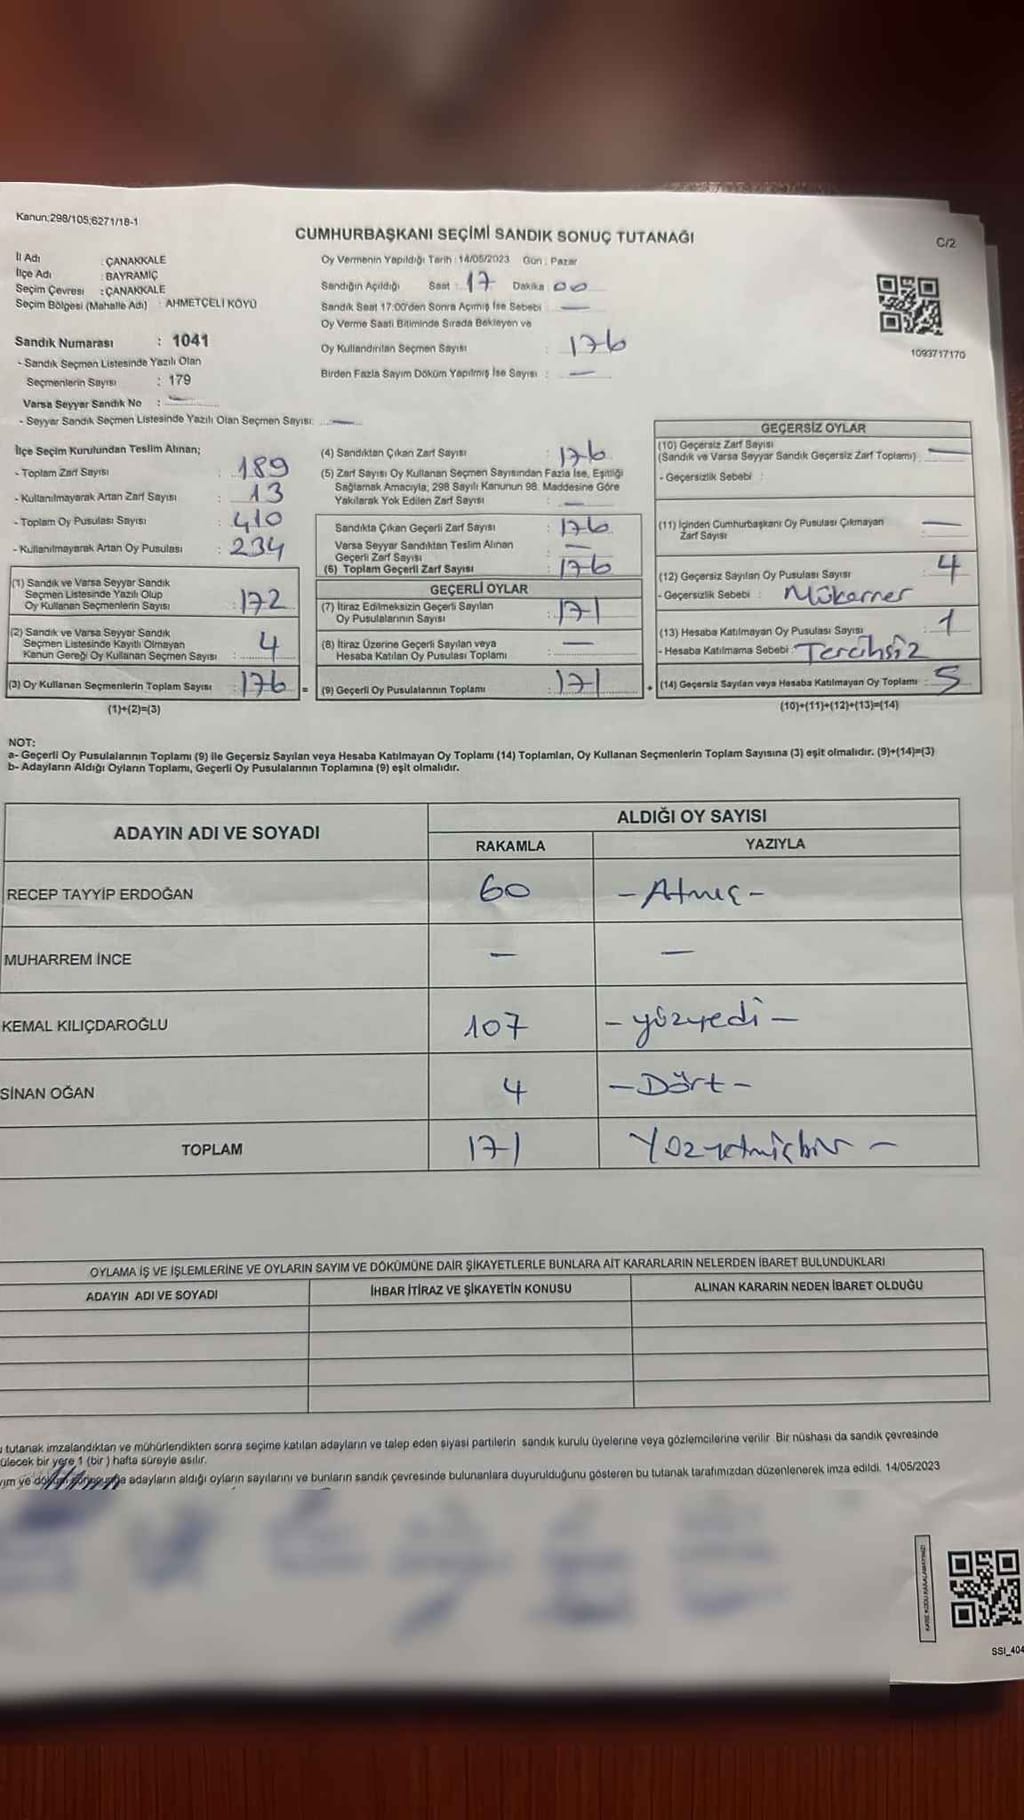 Kanun:298/105,6271/18-1
CUMHURBAŞKANI SEÇİMİ SANDIK SONUÇ TUTANAĞI
C/2
İl Adı : ÇANAKKALE
İlçe Adı : BAYRAMİÇ
Seçim Çevresi : ÇANAKKALE
Seçim Bölgesi (Mahalle Adı) : AHMETÇELİ KÖYÜ
Sandık Numarası : 1041
- Sandık Seçmen Listesinde Yazılı Olan
Seçmenlerin Sayısı : 179
Varsa Seyyar Sandık No : —
- Seyyar Sandık Seçmen Listesinde Yazılı Olan Seçmen Sayısı: —
Oy Vermenin Yapıldığı Tarih : 14/05/2023 Gün : Pazar
Sandığın Açıldığı Saat : 17 Dakika : 00
Sandık Saat 17:00'den Sonra Açılmış İse Sebebi : —
Oy Verme Saati Bitiminde Sırada Bekleyen ve
Oy Kullandırılan Seçmen Sayısı : 176
Birden Fazla Sayım Döküm Yapılmış İse Sayısı : —
1093717170
İlçe Seçim Kurulundan Teslim Alınan;
- Toplam Zarf Sayısı : 189
- Kullanılmayarak Artan Zarf Sayısı : 13
- Toplam Oy Pusulası Sayısı : 410
- Kullanılmayarak Artan Oy Pusulası : 234
(1) Sandık ve Varsa Seyyar Sandık
Seçmen Listesinde Yazılı Olup
Oy Kullanan Seçmenlerin Sayısı : 172
(2) Sandık ve Varsa Seyyar Sandık
Seçmen Listesinde Kayıtlı Olmayan
Kanun Gereği Oy Kullanan Seçmen Sayısı : 4
(3) Oy Kullanan Seçmenlerin Toplam Sayısı : 176
(1)+(2)=(3)
(4) Sandıktan Çıkan Zarf Sayısı : 176
(5) Zarf Sayısı Oy Kullanan Seçmen Sayısından Fazla İse, Eşitliği
Sağlamak Amacıyla; 298 Sayılı Kanunun 98. Maddesine Göre
Yakılarak Yok Edilen Zarf Sayısı : —
Sandıkta Çıkan Geçerli Zarf Sayısı : 176
Varsa Seyyar Sandıktan Teslim Alınan
Geçerli Zarf Sayısı : —
(6) Toplam Geçerli Zarf Sayısı : 176
GEÇERLİ OYLAR
(7) İtiraz Edilmeksizin Geçerli Sayılan
Oy Pusulalarının Sayısı : 171
(8) İtiraz Üzerine Geçerli Sayılan veya
Hesaba Katılan Oy Pusulası Toplamı : —
= (9) Geçerli Oy Pusulalarının Toplamı : 171 +
GEÇERSİZ OYLAR
(10) Geçersiz Zarf Sayısı
(Sandık ve Varsa Seyyar Sandık Geçersiz Zarf Toplamı) : —
- Geçersizlik Sebebi :
(11) İçinden Cumhurbaşkanı Oy Pusulası Çıkmayan
Zarf Sayısı : —
(12) Geçersiz Sayılan Oy Pusulası Sayısı : 4
- Geçersizlik Sebebi : Mükerrer
(13) Hesaba Katılmayan Oy Pusulası Sayısı : 1
- Hesaba Katılmama Sebebi : Tercihsiz
(14) Geçersiz Sayılan veya Hesaba Katılmayan Oy Toplamı : 5
(10)+(11)+(12)+(13)=(14)
NOT:
a- Geçerli Oy Pusulalarının Toplamı (9) ile Geçersiz Sayılan veya Hesaba Katılmayan Oy Toplamı (14) Toplamları, Oy Kullanan Seçmenlerin Toplam Sayısına (3) eşit olmalıdır. (9)+(14)=(3)
b- Adayların Aldığı Oyların Toplamı, Geçerli Oy Pusulalarının Toplamına (9) eşit olmalıdır.
ADAYIN ADI VE SOYADI
ALDIĞI OY SAYISI
RAKAMLA YAZIYLA
RECEP TAYYİP ERDOĞAN 60 - Atmış -
MUHARREM İNCE — —
KEMAL KILIÇDAROĞLU 107 - yüzyedi -
SİNAN OĞAN 4 - Dört -
TOPLAM 171 Yüzyetmişbir -
OYLAMA İŞ VE İŞLEMLERİNE VE OYLARIN SAYIM VE DÖKÜMÜNE DAİR ŞİKAYETLERLE BUNLARA AİT KARARLARIN NELERDEN İBARET BULUNDUKLARI
ADAYIN ADI VE SOYADI İHBAR İTİRAZ VE ŞİKAYETİN KONUSU ALINAN KARARIN NEDEN İBARET OLDUĞU
tutanak imzalandıktan ve mühürlendikten sonra seçime katılan adayların ve talep eden siyasi partilerin sandık kurulu üyelerine veya gözlemcilerine verilir. Bir nüshası da sandık çevresinde
ülecek bir yere 1 (bir) hafta süreyle asılır.
yım ve döküm sonucunda adayların aldığı oyların sayılarını ve bunların sandık çevresinde bulunanlara duyurulduğunu gösteren bu tutanak tarafımızdan düzenlenerek imza edildi. 14/05/2023
SSI_404